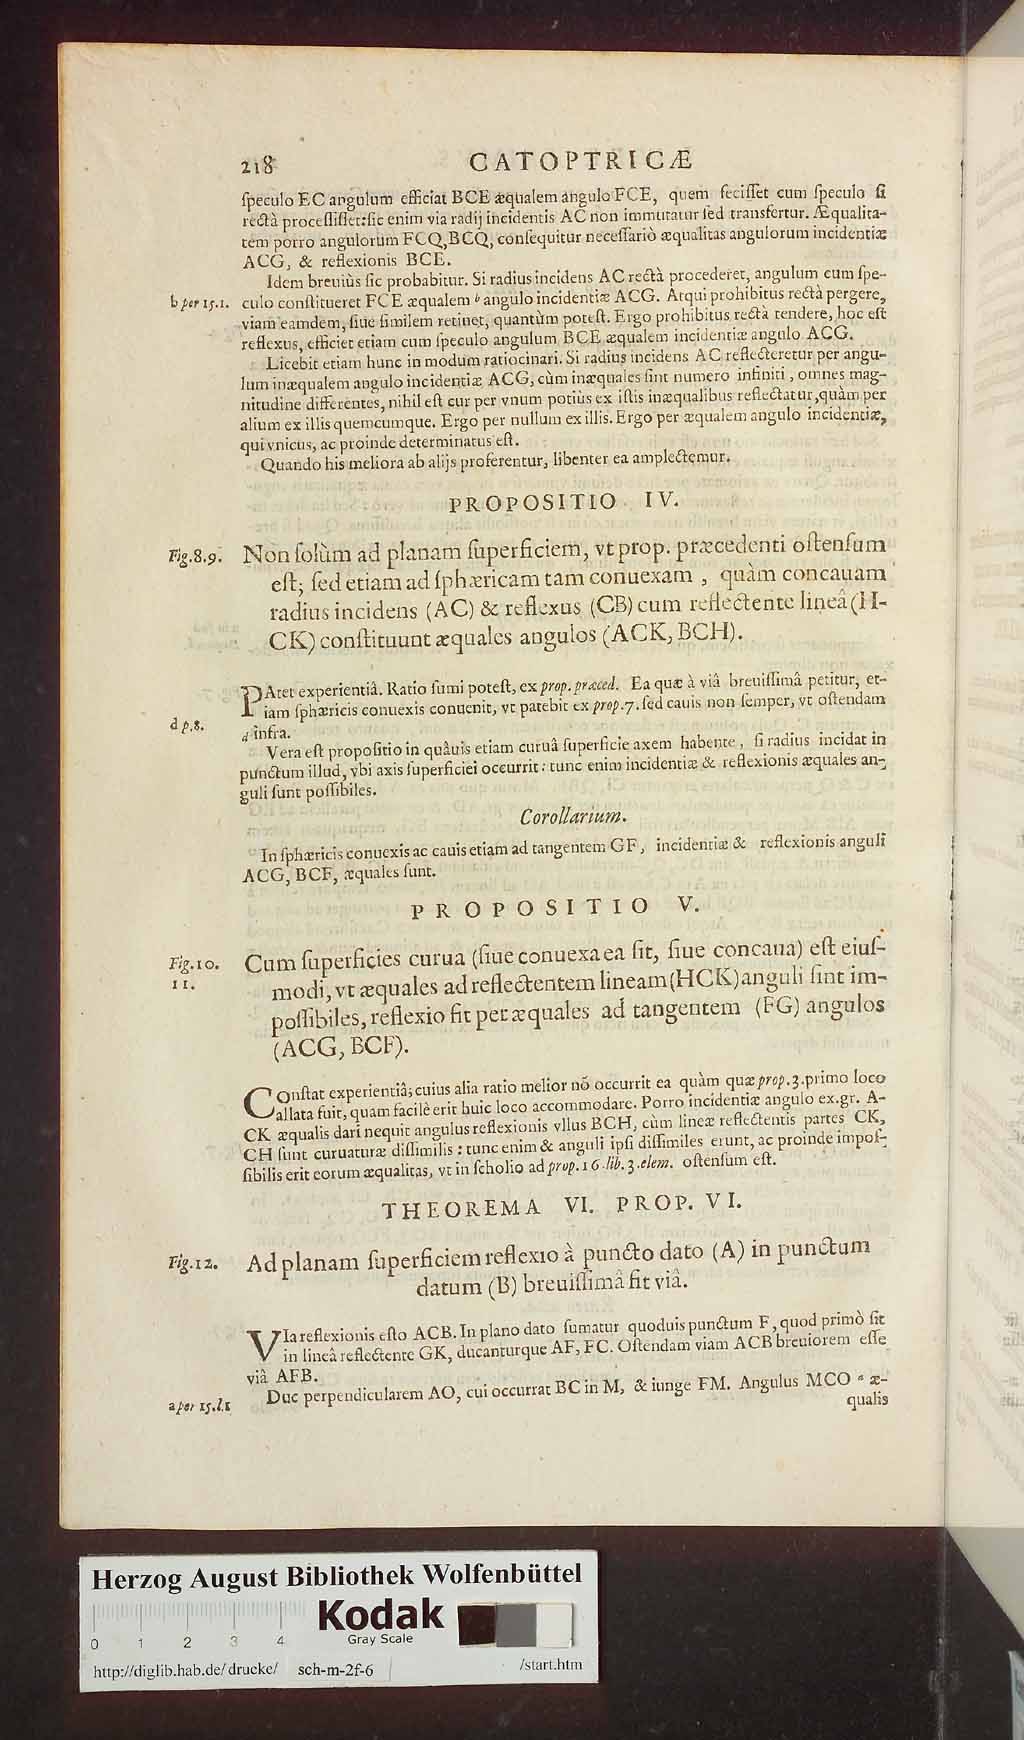 218 CATOPTRICÆ
ſpeculo EC angulum efficiat BCE æqualem angulo FCE, quem feciſſet cum ſpeculo ſi
rectà proceſſiſſet: ſic enim via radij incidentis AC non immutatur ſed transfertur. Æqualita-
tem porro angulorum FCQ, BCQ, conſequitur neceſſariò æqualitas angulorum incidentiæ
ACG, & reflexionis BCE.
Idem breuiùs ſic probabitur. Si radius incidens AC rectà procederet, angulum cum ſpe-
b per 15.1. culo conſtitueret FCE æqualem b angulo incidentiæ ACG. Atqui prohibitus rectà pergere,
viam eamdem, ſiue ſimilem retinet, quantùm poteſt. Ergo prohibitus rectà tendere, hoc eſt
reflexus, efficiet etiam cum ſpeculo angulum BCE æqualem incidentiæ angulo ACG.
Licebit etiam hunc in modum ratiocinari. Si radius incidens AC reflecteretur per angu-
lum inæqualem angulo incidentiæ ACG, cùm inæquales ſint numero infiniti, omnes mag-
nitudine differentes, nihil eſt cur per vnum potiùs ex iſtis inæqualibus reflectatur, quàm per
alium ex illis quemcumque. Ergo per nullum ex illis. Ergo per æqualem angulo incidentiæ,
qui vnicus, ac proinde determinatus eſt.
Quando his meliora ab alijs proferentur, libenter ea amplectemur.
PROPOSITIO IV.
Fig.8.9. Non ſolùm ad planam ſuperficiem, vt prop. præcedenti oſtenſum
eſt; ſed etiam ad ſphæricam tam conuexam, quàm concauam
radius incidens (AC) & reflexus (CB) cum reflectente lineâ (H-
CK) conſtituunt æquales angulos (ACK, BCH).
PAtet experientiâ. Ratio ſumi poteſt, ex prop. præced. Ea quæ à viâ breuiſſimâ petitur, et-
iam ſphæricis conuexis conuenit, vt patebit ex prop. 7. ſed cauis non ſemper, vt oſtendam
d p.8. d infra.
Vera eſt propoſitio in quâuis etiam curuâ ſuperficie axem habente, ſi radius incidat in
punctum illud, vbi axis ſuperficiei occurrit: tunc enim incidentiæ & reflexionis æquales an-
guli ſunt poſſibiles.
Corollarium.
In ſphæricis conuexis ac cauis etiam ad tangentem GF, incidentiæ & reflexionis anguli
ACG, BCF, æquales ſunt.
PROPOSITIO V.
Fig.10. Cum ſuperficies curua (ſiue conuexa ea ſit, ſiue concaua) eſt eiuſ-
11. modi, vt æquales ad reflectentem lineam (HCK) anguli ſint im-
poſſibiles, reflexio fit per æquales ad tangentem (FG) angulos
(ACG, BCF).
COnſtat experientiâ; cuius alia ratio melior nō occurrit ea quàm quæ prop. 3. primo loco
allata fuit, quam facilè erit huic loco accommodare. Porro incidentiæ angulo ex. gr. A-
CK æqualis dari nequit angulus reflexionis vllus BCH, cùm lineæ reflectentis partes CK,
CH ſunt curuaturæ diſſimilis: tunc enim & anguli ipſi diſſimiles erunt, ac proinde impoſ-
ſibilis erit eorum æqualitas, vt in ſcholio ad prop. 16. lib. 3. elem. oſtenſum eſt.
THEOREMA VI. PROP. VI.
Fig.12. Ad planam ſuperficiem reflexio à puncto dato (A) in punctum
datum (B) breuiſſimâ fit viâ.
VIa reflexionis eſto ACB. In plano dato ſumatur quoduis punctum F, quod primò ſit
in lineâ reflectente GK, ducanturque AF, FC. Oſtendam viam ACB breuiorem eſſe
viâ AFB.
a per 15.l.1 Duc perpendicularem AO, cui occurrat BC in M, & iunge FM. Angulus MCO a æ-
qualis
Herzog August Bibliothek Wolfenbüttel
Kodak
Gray Scale
0 1 2 3 4
http://diglib.hab.de/drucke/ sch-m-2f-6 /start.htm